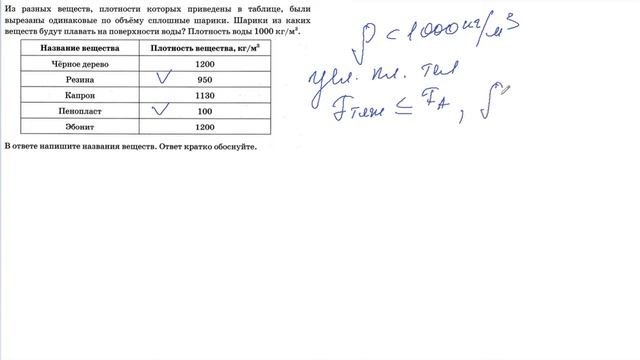 Из разных веществ, плотности которых приведены в таблице, были
вырезаны одинаковые по объёму сплошные шарики. Шарики из каких
веществ будут плавать на поверхности воды? Плотность воды 1000 кг/м³.
Название вещества Плотность вещества, кг/м³
Чёрное дерево 1200
Резина 950
Капрон 1130
Пенопласт 100
Эбонит 1200
В ответе напишите названия веществ. Ответ кратко обоснуйте.
ρ < 1000 кг/м³
усл. пл. тел
Fтяж ≤ FА, ρ